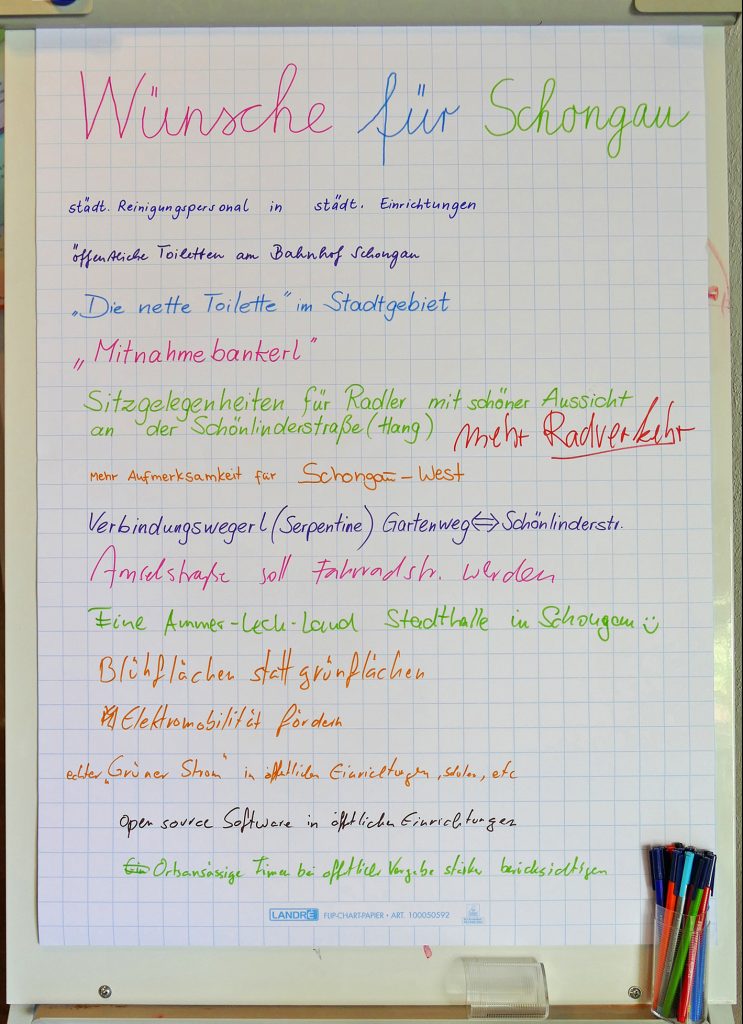 Wünsche für Schongau
städt. Reinigungspersonal in städt. Einrichtungen
öffentliche Toiletten am Bahnhof Schongau
„Die nette Toilette" im Stadtgebiet
„Mitnahmebankerl"
Sitzgelegenheiten für Radler mit schöner Aussicht
an der Schönlinderstraße (Hang)
mehr Radverkehr
Mehr Aufmerksamkeit für Schongau-West
Verbindungswegerl (Serpentine) Gartenweg ⇔ Schönlinderstr.
Amselstraße soll Fahrradstr. werden
Eine Ammer-Lech-Land Stadthalle in Schongau :)
Blühflächen statt grünflächen
Elektromobilität fördern
echter „Grüner Strom" in öffentlichen Einrichtungen, schulen, etc
Open source Software in öfftlichen Einrichtungen
Ortsansässige Firmen bei öfftlicher Vergabe stärker berücksichtigen
LANDRÉ FLIP-CHART-PAPIER • ART. 100050592